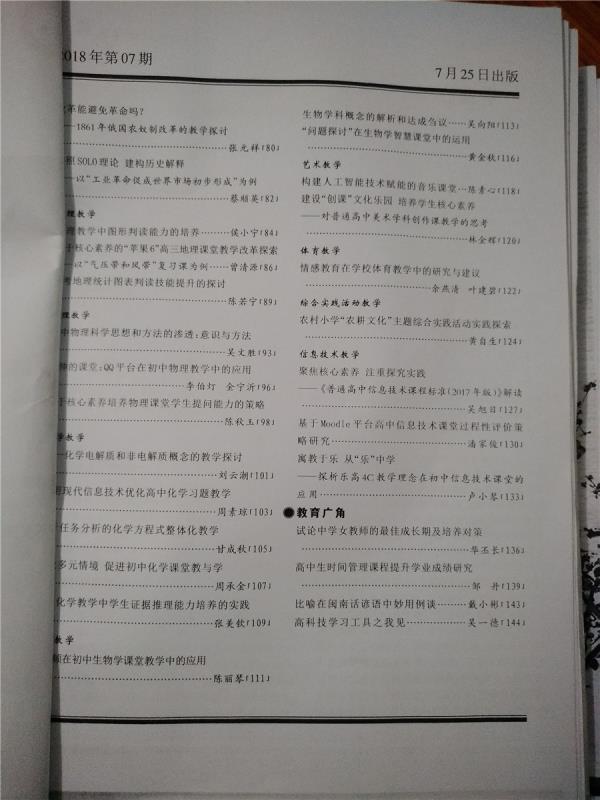 2018年第07期
7月25日出版
革能避免革命吗?
——1861年俄国农奴制改革的教学探讨
张元祥「80」
SOLO理论 建构历史解释
——以“工业革命促成世界市场初步形成”为例
蔡顺英「82」
理教学
教学中图形判读能力的培养……侯小宁「84」
核心素养的“苹果6”高三地理课堂教学改革探索
——以“气压带和风带”复习课为例……曾清源「86」
地理统计图表判读技能提升的探讨
陈若宁「89」
理教学
中物理科学思想和方法的渗透:意识与方法
吴文胜「93」
的课堂:QQ平台在初中物理教学中的应用
李伯灯 金宁沂「96」
核心素养培养物理课堂学生提问能力的策略
陈秋玉「98」
学教学
化学电解质和非电解质概念的教学探讨
刘云潮「101」
现代信息技术优化高中化学习题教学
周素琼「103」
任务分析的化学方程式整体化教学
甘成秋「105」
多元情境 促进初中化学课堂教与学
周承金「107」
化学教学中学生证据推理能力培养的实践
张美钦「109」
教学
在初中生物学课堂教学中的应用
陈丽琴「111」
生物学科概念的解析和达成刍议……吴向阳「113」
“问题探讨”在生物学智慧课堂中的运用
黄金秋「116」
艺术教学
构建人工智能技术赋能的音乐课堂…陈素心「118」
建设“创课”文化乐园 培养学生核心素养
——对普通高中美术学科创作课教学的思考
林金辉「120」
体育教学
情感教育在学校体育教学中的研究与建议
余燕清 叶建碧「122」
综合实践活动教学
农村小学“农耕文化”主题综合实践活动实践探索
黄自生「124」
信息技术教学
聚焦核心素养 注重探究实践
——《普通高中信息技术课程标准(2017年版)》解读
吴旭日「127」
基于Moodle平台高中信息技术课堂过程性评价策
略研究……潘家俊「130」
寓教于乐 从“乐”中学
——探析乐高4C教学理念在初中信息技术课堂的
应用……卢小琴「133」
●教育广角
试论中学女教师的最佳成长期及培养对策
华丕长「136」
高中生时间管理课程提升学业成绩研究
邹 卉「139」
比喻在闽南话谚语中妙用例谈……戴小彬「143」
高科技学习工具之我见……吴一德「144」